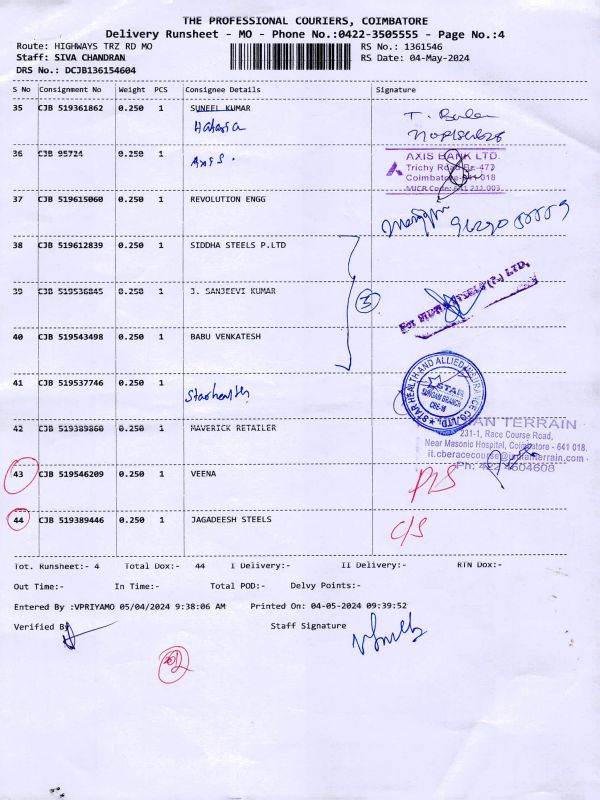 THE PROFESSIONAL COURIERS, COIMBATORE
Delivery Runsheet - MO - Phone No.:0422-3505555 - Page No.:4
Route: HIGHWAYS TRZ RD MO RS No.: 1361546
Staff: SIVA CHANDRAN RS Date: 04-May-2024
DRS No.: DCJB136154604
S No Consignment No Weight PCS Consignee Details Signature
35 CJB 519361862 0.250 1 SUNEEL KUMAR
T.
36 CJB 95724 0.250 1 Axis.
AXIS BANK LTD.
Trichy Road
Coimbatore-641 018
MICR Code: 641 211 003
37 CJB 519615060 0.250 1 REVOLUTION ENGG
38 CJB 519612839 0.250 1 SIDDHA STEELS P.LTD
39 CJB 519536845 0.250 1 J. SANJEEVI KUMAR
3
For (P.) LTD.
40 CJB 519543498 0.250 1 BABU VENKATESH
41 CJB 519537746 0.250 1 Starhealth
STAR HEALTH AND ALLIED INSURANCE CO. LTD.
STAR
BRANCH
CBE-18
42 CJB 519389860 0.250 1 MAVERICK RETAILER
TERRAIN
231-1, Race Course Road,
Near Masonic Hospital, Coimbatore - 641 018.
Ph: 422 4604608
43 CJB 519546209 0.250 1 VEENA
44 CJB 519389446 0.250 1 JAGADEESH STEELS
C/S
Tot. Runsheet:- 4 Total Dox:- 44 I Delivery:- II Delivery:- RTN Dox:-
Out Time:- In Time:- Total POD:- Delvy Points:-
Entered By :VPRIYAMO 05/04/2024 9:38:06 AM Printed On: 04-05-2024 09:39:52
Verified By Staff Signature